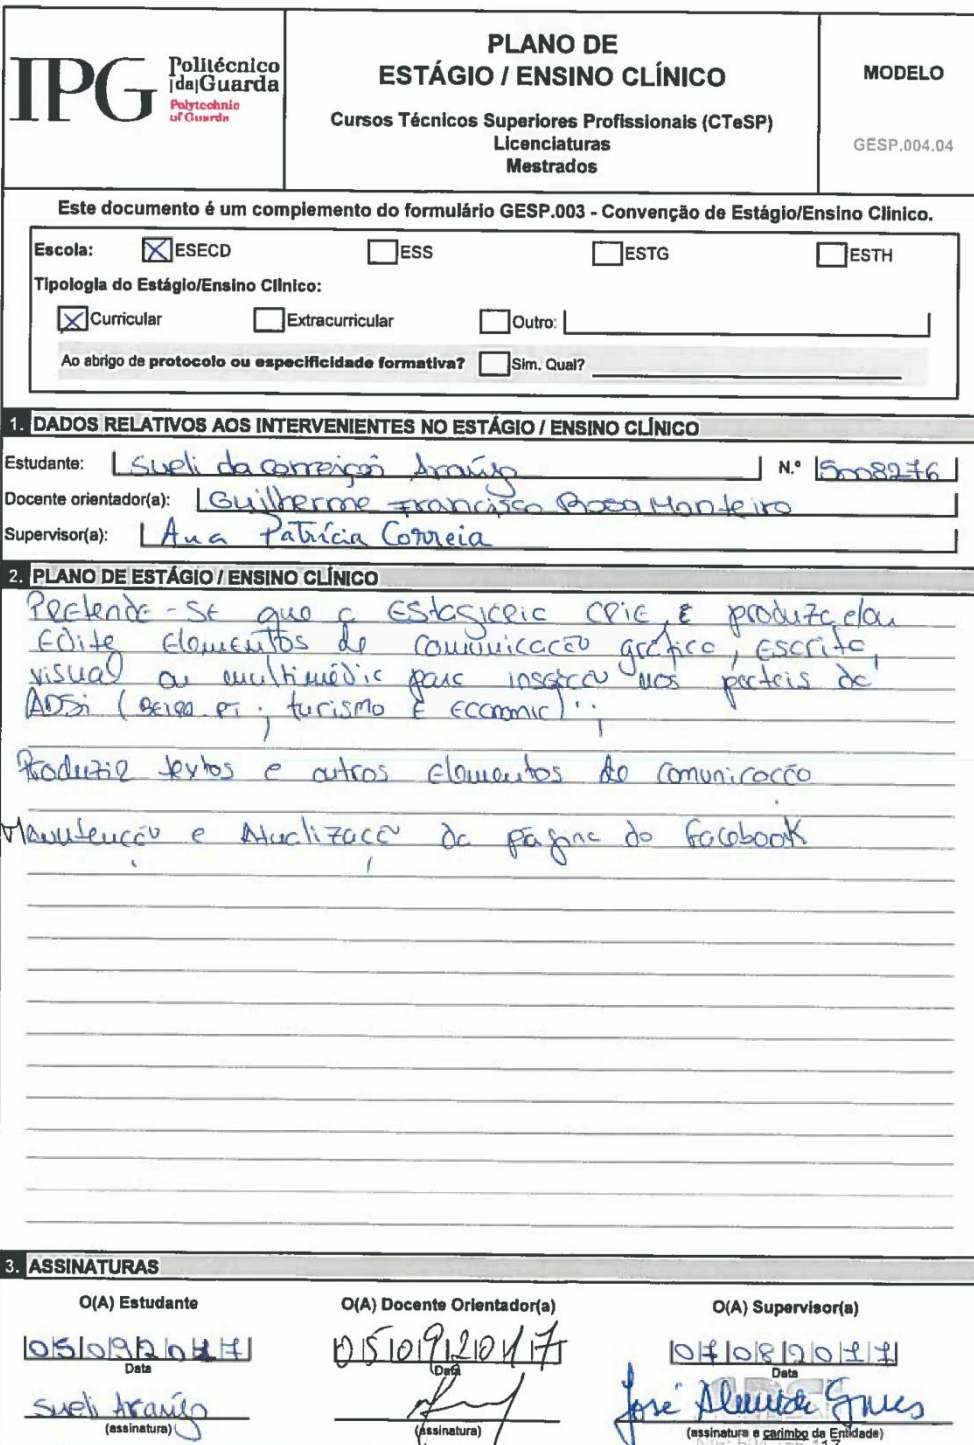 IPG Politécnico
|da|Guarda
Polytechnic
of Guarda
PLANO DE
ESTÁGIO / ENSINO CLÍNICO
Cursos Técnicos Superiores Profissionais (CTeSP)
Licenciaturas
Mestrados
MODELO
GESP.004.04
Este documento é um complemento do formulário GESP.003 - Convenção de Estágio/Ensino Clínico.
Escola: X ESECD ESS ESTG ESTH
Tipologia do Estágio/Ensino Clínico:
X Curricular Extracurricular Outro:
Ao abrigo de protocolo ou especificidade formativa? Sim. Qual?
1. DADOS RELATIVOS AOS INTERVENIENTES NO ESTÁGIO / ENSINO CLÍNICO
Estudante: Sueli da Araújo N.º 5008276
Docente orientador(a): Guilherme Francisco Rosa Monteiro
Supervisor(a): Ana Patrícia Correia
2. PLANO DE ESTÁGIO / ENSINO CLÍNICO
Pretende-se que a Estagiária crie, e produza e/ou
Edite Elementos de comunicação gráfica, escrita,
visual ou multimédia para inserção nos portais da
ADSI (BEIRA.PT; turismo E Economia);
Produzir textos e outros Elementos de comunicação
Manutenção e Atualização da página do Facebook
3. ASSINATURAS
O(A) Estudante O(A) Docente Orientador(a) O(A) Supervisor(a)
05092017 05092017 07082017
Data Data Data
Sueli Araújo José Almeida
(assinatura) (assinatura) (assinatura e carimbo da Entidade)